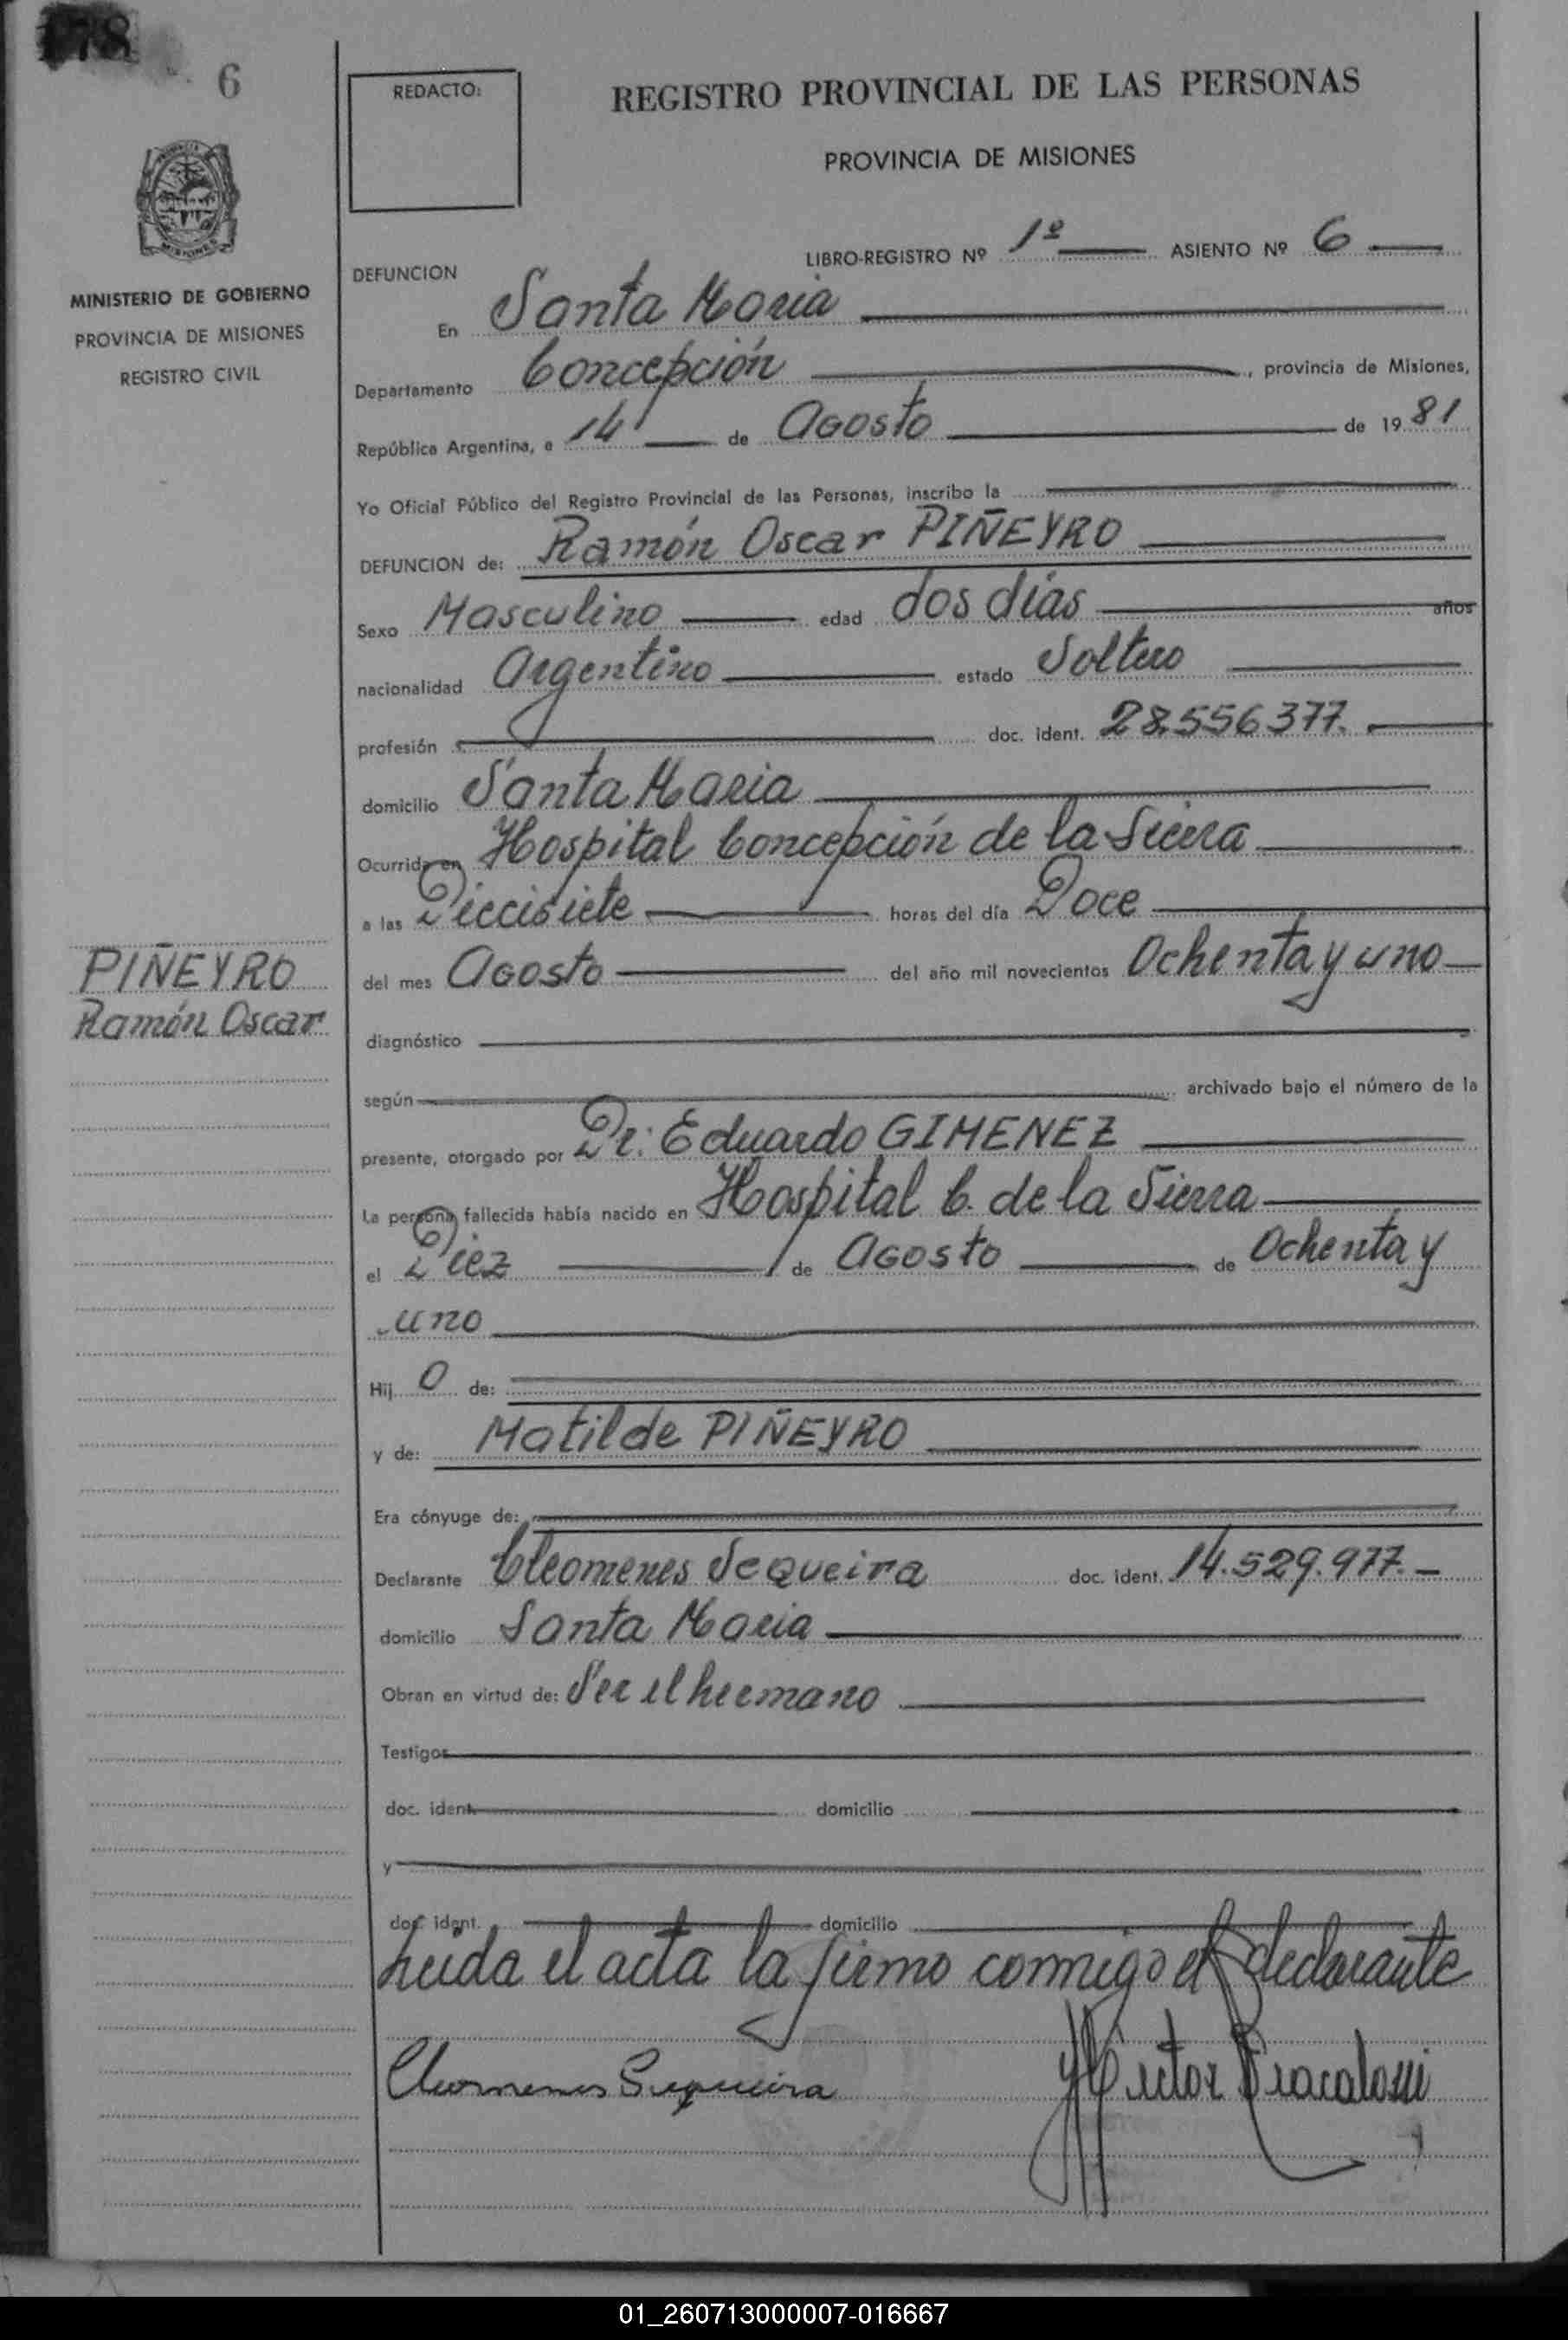 178
6
REDACTO:
REGISTRO PROVINCIAL DE LAS PERSONAS
PROVINCIA DE MISIONES
MISIONES
MINISTERIO DE GOBIERNO
PROVINCIA DE MISIONES
REGISTRO CIVIL
LIBRO-REGISTRO Nº 1º ASIENTO Nº 6
DEFUNCION
En Santa Maria
Departamento Concepción, provincia de Misiones,
República Argentina, a 14 de Agosto de 1981
Yo Oficial Público del Registro Provincial de las Personas, inscribo la
DEFUNCION de: Ramón Oscar PIÑEYRO
Sexo Masculino edad dos días años
nacionalidad Argentino estado Soltero
profesión doc. ident. 28.556.377.
domicilio Santa Maria
Ocurrida en Hospital Concepción de la Sierra
a las Diecisiete horas del día Doce
del mes Agosto del año mil novecientos Ochenta y uno
PIÑEYRO
Ramón Oscar
diagnóstico
según archivado bajo el número de la
presente, otorgado por Dr: Eduardo GIMENEZ
La persona fallecida había nacido en Hospital C. de la Sierra
el Diez de Agosto de Ochenta y
uno
Hij o de:
y de: Matilde PIÑEYRO
Era cónyuge de:
Declarante Cleomenes Sequeira doc. ident. 14.529.977.-
domicilio Santa Maria
Obran en virtud de: Ser el hermano
Testigos
doc. ident. domicilio
y
doc. ident. domicilio
Leida el acta la firmo conmigo el declarante
Cleomenes Sequeira
Hector
01_260713000007-016667